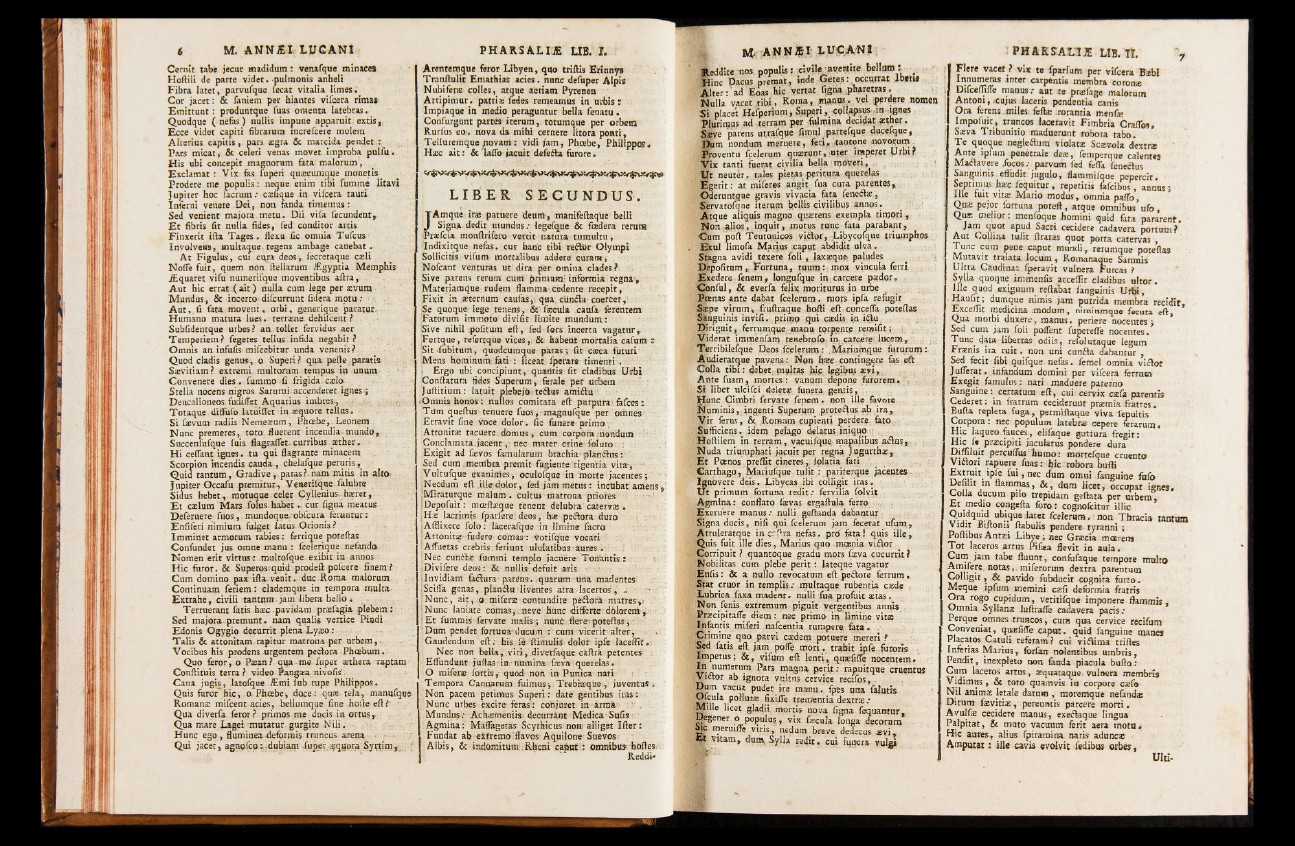 6 M. ANNÆI LUCANI
Cernit tabe jecur madidum : venasque minaces
Hostili de parte videt. pulmonis anheli
Fibra latet, parvusque secat vitalia limes.
Cor jacet : & saniem per hiantes viscera rimas
Emittunt : produntque suas omenta latebras.
Quodque ( nefas ) nullis impune apparuit extis,
Ecce videt capiti fibrarum increscere molem
Alterius capitis, pars ægra & marcida pendet :
Pars micat, & celeri venas movet improba pulsu.
His ubi concepit magnorum fata malorum,
Exclamat : Vix fas superi quæcumque monetis
Prodere me populis : neque enim tibi summe litavi
Jupiter hoc sacrum : cæsique in viscera tauri
Inferni venere Dei, non fanda timemus :
Sed venient majora metu. Dii visa secundent,
Et fibris sit nulla fides, sed conditor artis
Finxerit ista Tages. flexa sic omnia Tuscus
Involvens, multaque tegens ambage canebat.
At Figulus, cui cura deos, secretaque cæli
Nosse fuit, quem non stellarum Ægyptia Memphis
Æquaret visu numerisque moventibus astra,
Aut hic errat ( ait ) nulla cum lege per ævum
Mundus, & incerto discurrunt sidera motu :
Aut, si fata movent, orbi, generique paratur
Humano matura lues. terræne dehiscent ?
Subsidentque urbes ? an tollet fervidus aer
Temperiem ? segetes tellus infida negabit ?
Omnis an infusis miscebitur unda venenis ?
Quod cladis genus, o Superi ? qua peste paratis
Sævitiam ? extremi multorum tempus in unum
Convenere dies. summo si frigida cælo
Stella nocens nigros Saturni accenderet ignes ;
Deucalioneos fudisset Aquarius imbres,
Totaque diffuso latuisset in æquore tellus.
Si sævum radiis Nemeæum, Phœbe, Leonem
Nunc premeres, toto fluerent incendia mundo,
Succensusque tuis flagrasset curribus æther.
Hi cessant ignes. tu qui flagrante minacem
Scorpion incendis cauda, chelasque peruris,
Quid tantum, Gradive, paras ? nam mitis in alto
Jupiter Occasu premitur, Venerisque salubre
Sidus hebet, motuque celer Cyllenius hæret,
Et cælum Mars solus habet. cur signa meatus
Deseruere suos, mundoque obscura feruntur :
Ensiferi nimium fulget latus Orionis ?
Imminet armorum rabies : ferrique potestas
Confundet jus omne manu : scelerique nefando
Nomen erit virtus : multosque exibit in annos
Hic furor. & Superos quid prodest poscere finem ?
Cum domino pax ista venit. duc Roma malorum
Continuam seriem : clademque in tempora multa
Extrahe, civili tantum jam libera bello.
Terruerant satis hæc pavidam præsagia plebem :
Sed majora premunt. nam qualis vertice Pindi
Edonis Ogygio decurrit plena Lyæo :
Talis & attonitam rapitur matrona per urbem,
Vocibus his prodens urgentem pectora Phœbum.
Quo feror, o Pæan ? qua me super æthera raptam
Constituis terra ? video Pangæa nivosis
Cana jugis, latosque Æmi sub rupe Philippos.
Quis furor hic, o Phœbe, doce : quæ tela, manusque
Romanæ miscent acies, bellumque sine hoste est ?
Qua diversa feror ? primos me ducis in ortus,
Qua mare Lagei mutatur gurgite Nili.
Hunc ego, fluminea deformis truncus arena
Qui jacet, agnosco : dubiam super æquora Syrtim,
PHARSALIÆ LIB. I.
Arentemque feror Libyen, quo tristis Erinnys
Transtulit Emathias acies. nunc desuper Alpis
Nubiferæ colles, atque aeriam Pyrenen
Arripimur. patriæ sedes remeamus in urbis :
Impiaque in medio peraguntur bella senatu.
Consurgunt partes iterum, totumque per orbem
Rursus eo. nova da mihi cernere litora ponti,
Telluremque novam : vidi jam, Phœbe, Philippos.
Hæc ait : & lasso jacuit defecta furore.
LIBER SECUNDUS.
JAmque iræ patuere deum, manifestaque belli
Signa dedit mundus : legesque & fœdera rerum
Præscia monstrifero vertit natura tumultu,
Indixitque nefas. cur hanc tibi rector Olympi
Sollicitis visum mortalibus addere curam,
Noscant venturas ut dira per omina clades ?
Sive parens rerum cum primum informia regna,
Materiamque rudem flamma cedente recepit,
Fixit in æternum causas, qua cuncta coercet,
Se quoque lege tenens, & sæcula causa ferentem
Fatorum immoto divisit limite mundum :
Sive nihil positum est, sed fors incerta vagatur,
Fertque, refertque vices, & habent mortalia casum :
Sit subitum, quodcumque paras ; sit cæca futuri
Mens hominum fati : liceat sperare timenti.
Ergo ubi concipiunt, quantis sit cladibus Urbi
Constatura fides Superum, ferale per urbem
Justitium : latuit plebejo tectus amictu
Omnis honos : nullos comitata est purpura fasces :
Tum questus tenuere suos, magnusque per omnes
Erravit sine voce dolor. sic funere primo
Attonitæ tacuere domus, cum corpora nondum
Conclamata jacent, nec mater crine soluto
Exigit ad sævos famularum brachia planctus :
Sed cum membra premit fugiente rigentia vita,
Vultusque exanimes, oculosque in morte jacentes ;
Necdum est ille dolor, sed jam metus : incubat amens,
Miraturque malum. cultus matrona priores
Deposuit : mœstæque tenent delubra catervæ.
Hæ lacrimis sparsere deos, hæ pectora duro
Afflixere solo : lacerasque in limine sacro
Attonitæ fudere comas : votisque vocari
Assuetas crebris feriunt ululatibus aures.
Nec cunctæ summi templo jacuere Tonantis :
Divisere deos : & nullis defuit aris
Invidiam factura parens. quarum una madentes
Scissa genas, planctu liventes atra lacertos,
Nunc, ait, o miseræ contundite pectora matres,
Nunc laniate comas, neve hunc differte dolorem,
Et summis servate malis : nunc flere potestas,
Dum pendet fortuna ducum : cum vicerit alter,
Gaudendum est : his se stimulis dolor ipse lacessit.
Nec non bella, viri, diversaque castra petentes
Effundunt justas in numina sæva querelas.
O miseræ sortis, quod non in Punica nati
Tempora Cannarum fuimus, Trebiæque, juventus.
Non pacem petimus Superi : date gentibus iras :
Nunc urbes excite feras : conjuret in arma
Mundus : Achæmeniis decurrant Medica Susis
Agmina : Massagetas Scythicus non alliget Ister :
Fundat ab extremo flavos Aquilone Suevos
Albis, & indomitum Rheni caput : omnibus hostes
Reddi-
M. ANNÆI LUCANI
Reddite nos populis : civile avertite bellum :
Hinc Dacus premat, inde Getes : occurrat Iberis
Alter : ad Eoas hic vertat signa pharetras.
Nulla vacet tibi, Roma, manus. vel perdere nomen
Si placet Hesperium, Superi, collapsus in ignes
Plurimus ad terram per fulmina decidat æther.
Sæve parens utrasque simul partesque ducesque,
Dum nondum meruere, feri. tantone novorum
Proventu scelerum quærunt, uter imperet Urbi ?
Vix tanti fuerat civilia bella moveri,
Ut neuter. tales pietas peritura querelas
Egerit : at miseros angit sua cura parentes,
Oderuntque gravis vivacia fata senectæ,
Servatosque iterum bellis civilibus annos.
Atque aliquis magno quærens exempla timori,
Non alios, inquit, motus tunc fata parabant,
Cum post Teutonicos victor, Libycosque triumphos
Exul limosa Marius caput abdidit ulva.
Stagna avidi texere soli, laxæque paludes
Depositum, Fortuna, tuum : mox vincula ferri
Exedere senem, longusque in carcere pædor.
Consul, & eversa felix moriturus in urbe
Pœnas ante dabat scelerum. mors ipsa refugit
Sæpe virum, frustraque hosti est concessa potestas
Sanguinis invisi. primo qui cædis in ictu
Diriguit, ferrumque manu torpente remisit ;
Viderat immensam tenebroso in carcere lucem,
Terribilesque Deos scelerum : Mariumque futurum :
Audieratque pavens : Non hæc contingere fas est
Colla tibi : debet multas hic legibus ævi,
Ante suam, mortes : vanum depone furorem.
Si libet ulcisci deletæ funera gentis,
Hunc Cimbri servate senem. non ille favore
Numinis, ingenti Superum protectus ab ira,
Vir ferus, & Romam cupienti perdere fato
Sufficiens. idem pelago delatus iniquo
Hostilem in terram, vacuisque mapalibus actus,
Nuda triumphati jacuit per regna Jugurthæ,
Et Pœnos pressit cineres, solatia fati
Carthago, Mariusque tulit : pariterque jacentes
Ignovere deis. Libycas ibi colligit iras.
Ut primum fortuna redit : servilia solvit
Agmina : conflato sævas ergastula ferro
Exeruere manus : nulli gestanda dabantur
Signa ducis, nisi qui scelerum jam fecerat usum,
Attuleratque in castra nefas. pro fata ! quis ille,
Quis fuit ille dies, Marius quo mœnia victor
Corripuit ? quantoque gradu mors sæva cucurrit ?
Nobilitas cum plebe perit : lateque vagatur
Ensis : & a nullo revocatum est pectore ferrum.
Stat cruor in templis : multaque rubentia cæde
Lubrica saxa madent. nulli sua profuit ætas.
Non senis extremum piguit vergentibus annis
Præcipitasse diem : nec primo in limine vitæ
Infantis miseri nascentia rumpere fata.
Crimine quo parvi cædem potuere mereri ?
Sed satis est jam posse mori. trahit ipse furoris
Impetus ; &, visum est lenti, quæsisse nocentem.
In numerum Pars magna perit : rapuitque cruentus
Victor ab ignota vultus cervice recisos,
Dum vacua pudet ire manu. spes una salutis
Oscula pollutæ fixisse trementia dextræ.
Mille licet gladii mortis nova signa sequantur,
Degener o populus, vix sæcula longa decorum
Sic meruisse viris, nedum breve dedecus ævi,
Et vitam, dum Sylla redit. cui funera vulgi
PHARSALIÆ LIB. II. 7
Flere vacet ? vix te sparsum per viscera Bæbi
Innumeras inter carpentis membra coronæ
Discessisse manus : aut te præsage malorum
Antoni, cujus laceris pendentia canis
Ora ferens miles festæ rorantia mensæ
Imposuit, truncos laceravit Fimbria Crassos,
Sæva Tribunitio maduerunt robora tabo.
Te quoque neglectum violatæ Scævola dextræ
Ante ipsum penetrale deæ, semperque calentes
Mactavere focos : parvum sed fessa senectus
Sanguinis effudit jugulo, flammisque pepercit.
Septimus hæc sequitur, repetitis fascibus, annus ;
Ille fuit vitæ Mario modus, omnia passo,
Quæ pejor fortuna potest, atque omnibus uso,
Quæ melior : mensoque homini quid fata pararent.
Jam quot apud Sacri cecidere cadavera portum ?
Aut Collina tulit stratas quot porta catervas,
Tunc cum pene caput mundi, rerumque potestas
Mutavit tralata locum, Romanaque Samnis
Ultra Caudinas speravit vulnera Furcas ?
Sylla quoque immensis accessit cladibus ultor.
Ille quod exiguum restabat sanguinis Urbi,
Hausit ; dumque nimis jam putrida membra recidit,
Excessit medicina modum, nimiumque secuta est,
Qua morbi duxere, manus. periere nocentes ;
Sed cum jam soli possent superesse nocentes.
Tunc data libertas odiis, resolutaque legum
Frænis ira ruit. non uni cuncta dabantur,
Sed fecit sibi quisque nefas. semel omnia victor
Jusserat. infandum domini per viscera ferrum
Exegit famulos : nati maduere paterno
Sanguine : certatum est, cui cervix cæsa parentis
Cederet : in fratrum ceciderunt præmia fratres.
Busta repleta fuga, permistaque viva sepultis
Corpora : nec populum latebræ cepere ferarum.
Hic laqueo fauces, elisaque guttura fregit :
Hic se præcipiti jaculatus pondere dura
Dissiluit percussus humo : mortesque cruento
Victori rapuere suas : hic robora busti
Extruit ipse sui, nec dum omni sanguine fuso
Desilit in flammas, &, dum licet, occupat ignes.
Colla ducum pilo trepidam gestata per urbem,
Et medio congesta foro : cognoscitur illic
Quidquid ubique latet scelerum. non Thracia tantum
Vidit Bistonii stabulis pendere tyranni ;
Postibus Antæi Libye ; nec Græcia mœrens
Tot laceros artus Pisæa flevit in aula.
Cum jam tabe fluunt, confusaque tempore multo
Amisere notas, miserorum dextra parentum
Colligit, & pavido subducit cognita furto.
Meque ipsum memini cæsi deformia fratris
Ora rogo cupidum, vetitisque imponere flammis,
Omnia Syllanæ lustrasse cadavera pacis :
Perque omnes truncos, cum qua cervice recisum
Conveniat, quæsisse caput. quid sanguine manes
Placatos Catuli referam ? cui victima tristes
Inferias Marius, forsan nolentibus umbris,
Pendit, inexpleto non fanda piacula busto :
Cum laceros artus, æquataque vulnera membris
Vidimus, & toto quamvis in corpore cæso
Nil animæ letale datum, moremque nefandæ
Dirum sævitiæ, pereuntis parcere morti.
Avulsæ cecidere manus, exectaque lingua
Palpitat, & muto vacuum ferit aera motu.
Hic aures, alius spiramina naris aduncæ
Amputat : ille cavis evolvit sedibus orbes,
Ulti-